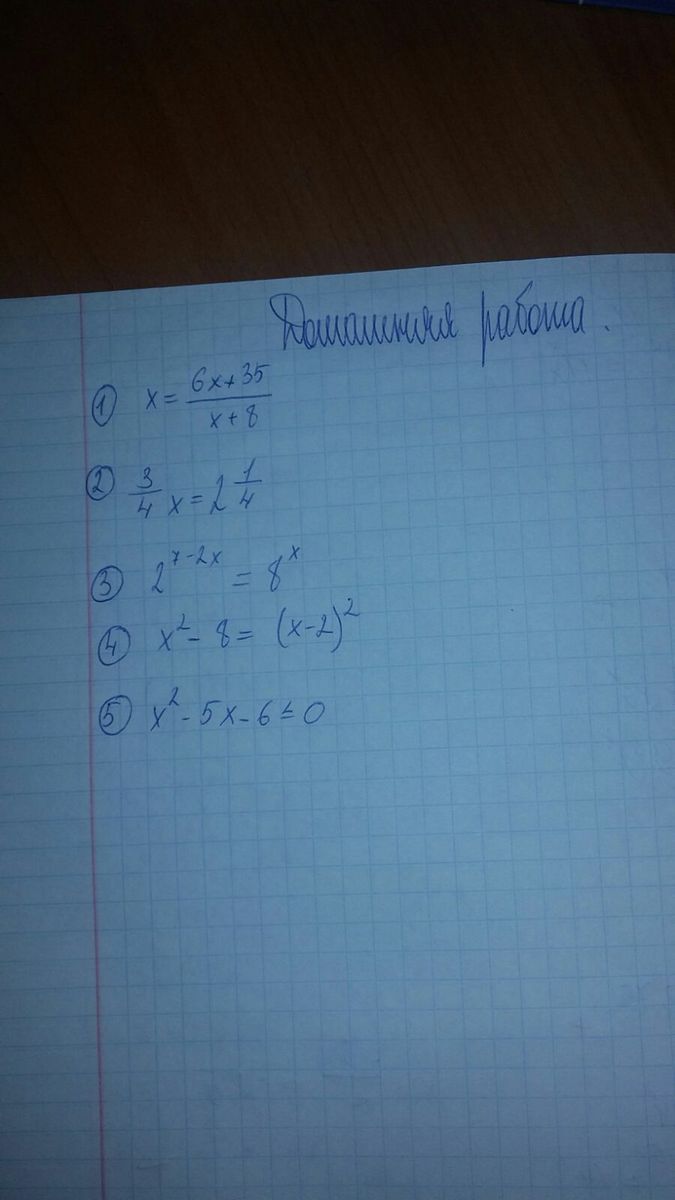 Домашняя работа.
① x = \frac{6x+35}{x+8}
② \frac{3}{4} x = 2 \frac{1}{4}
③ 2^{x-2x} = 8^x
④ x^2 - 8 = (x-2)^2
⑤ x^2 - 5x - 6 ≤ 0